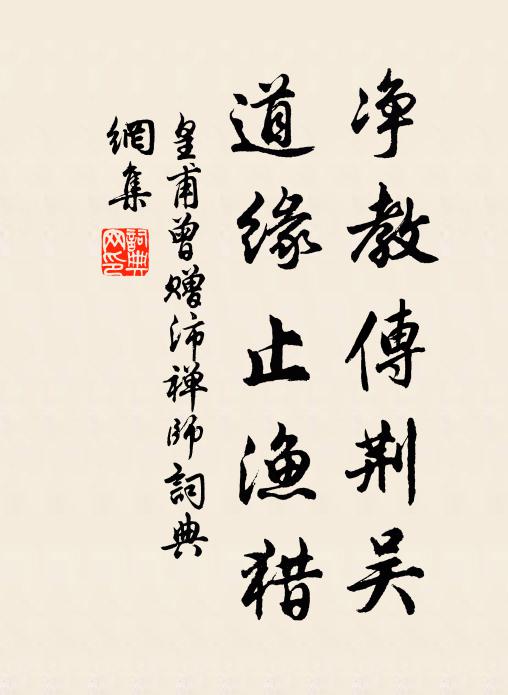 净教傳荆吴
道缘止渔猎
皇甫曾赠沛禅师詞典
網集
詞典
网印